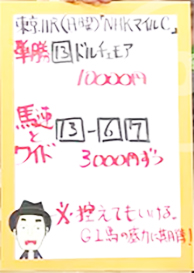 東京11R(日曜)「NHKマイルC」
単勝 13 ドルチェモア
10000円
馬連とワイド 13-6 7
3000円ずつ
※控えてもいける。
G1馬の底力に期待!